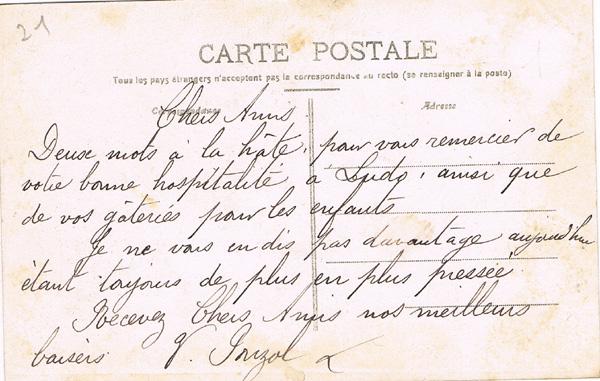 21
CARTE POSTALE
Tous les pays étrangers n'acceptent pas la correspondance au recto (se renseigner à la poste)
Correspondance
Adresse
Chers Amis
Deux mots à la hâte, pour vous remercier de
votre bonne hospitalité à Ludo, ainsi que
de vos gâteries pour les enfants
Je ne vous en dis pas davantage aujourd'hui
étant toujours de plus en plus pressée
Recevez Chers Amis nos meilleurs
baisers